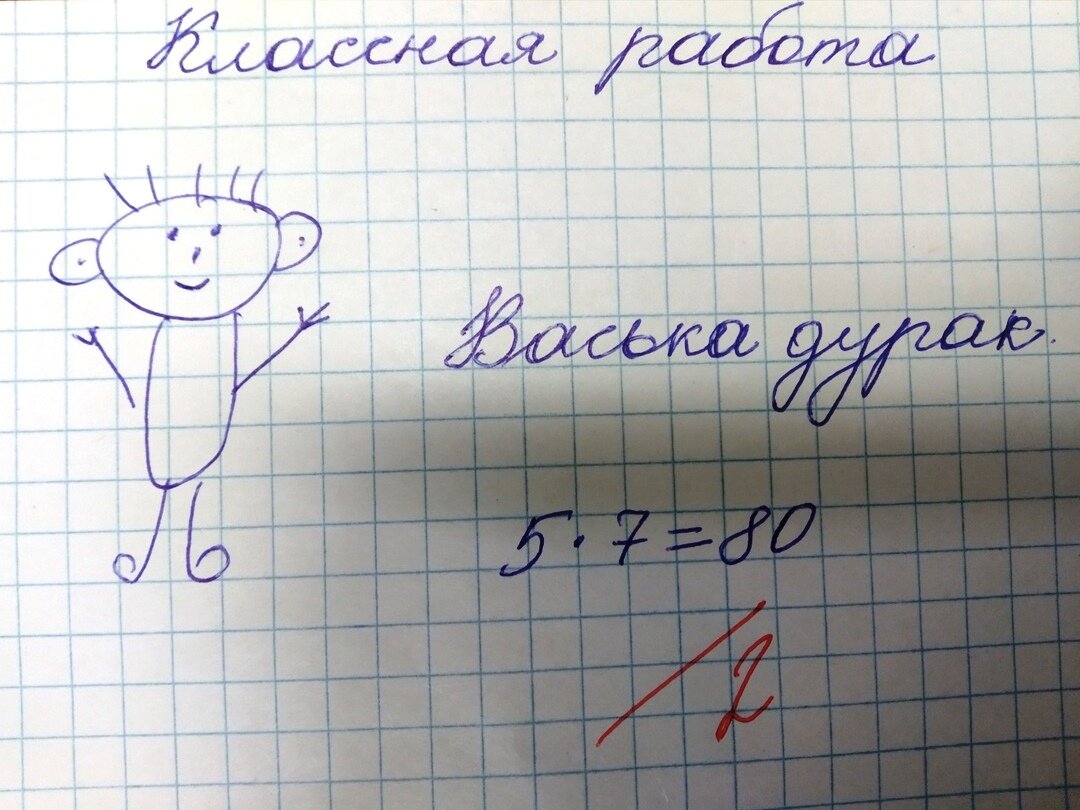 Классная работа
Васька дурак.
5·7=80
2